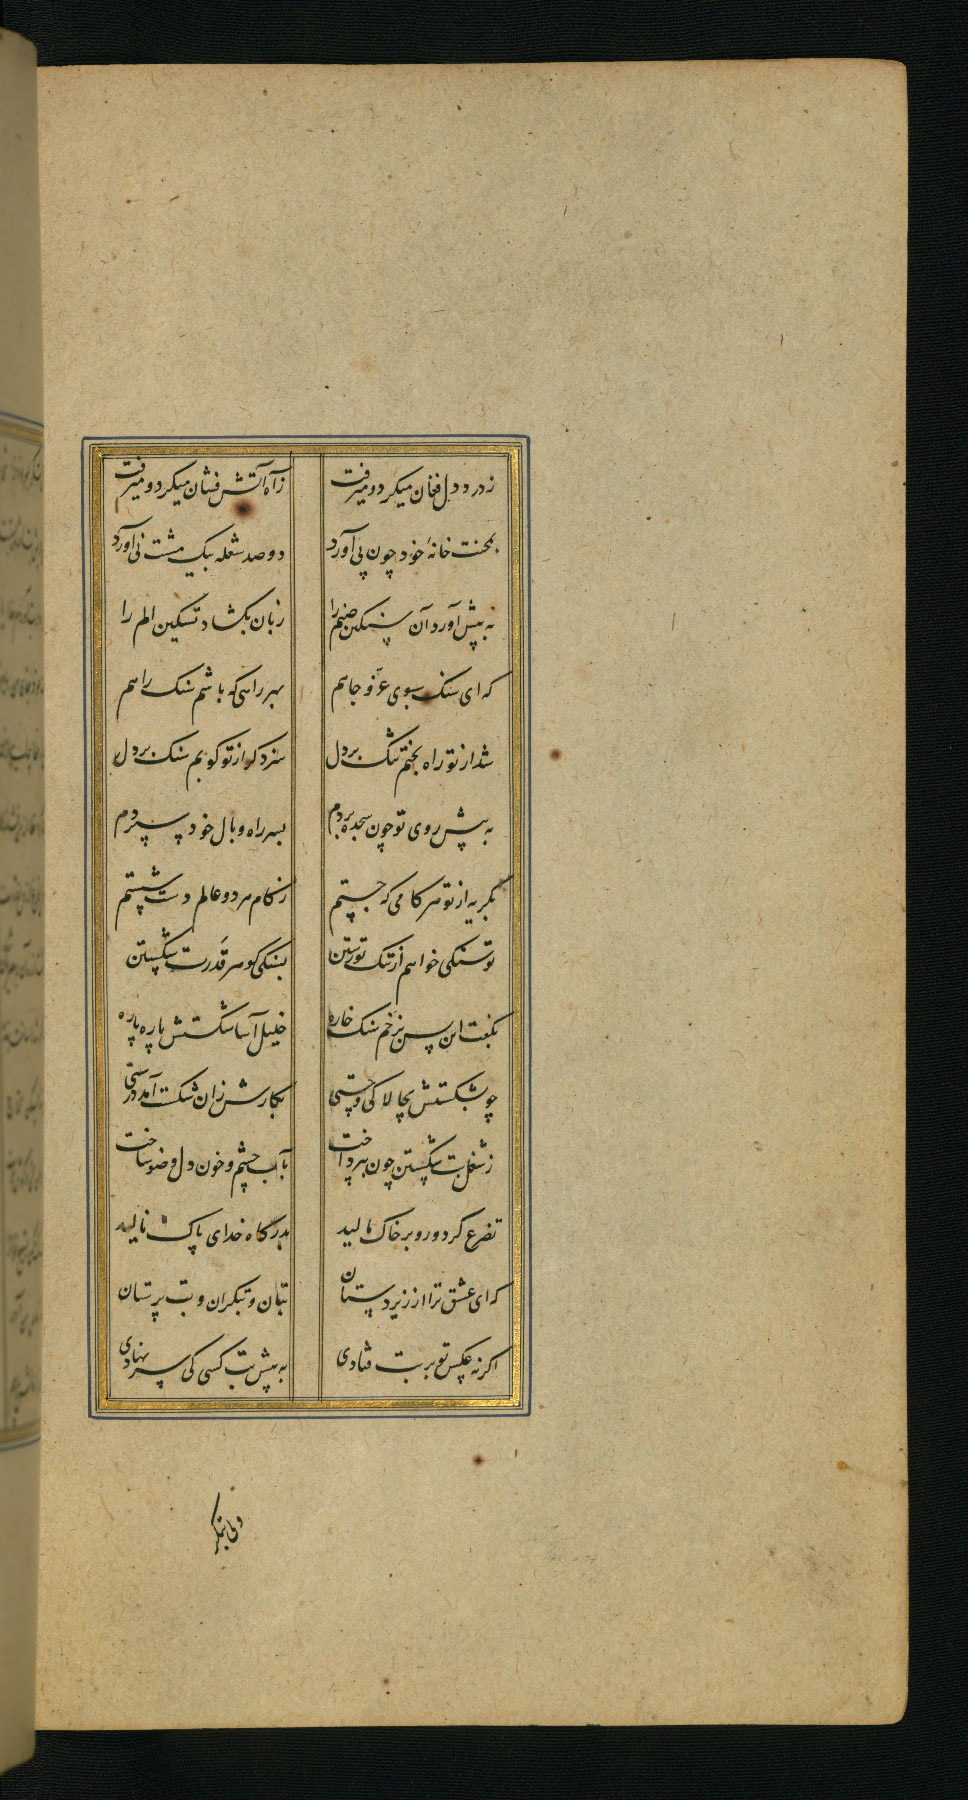 ز درد دل فغان میکرد و میرفت
ز آه آتش فشان میکرد و میرفت
بمحنت خانهٔ خود چون پی آورد
دو صد شعله بیک مشت نی آورد
به پیش آورد آن سنکین صنم را
زبان بکشاد تسکین الم را
که ای سنک سبوی عز و جاهم
بهر راهی که باشم سنک راهم
شد از تو راه بختم تنک بر دل
سزد کر از تو کوبم سنک بر دل
به پیش روی تو چون سجده بردم
بسر راه وبال خود سپردم
بکریه از تو هر کامی که جستم
ز کام هر دو عالم دست شستم
تو سنکی خواهم از ننک تو رستن
بسنکی کوهر قدرت شکستن
بکفت این پس بزخم سنک خاره
خلیل آسا شکستش پاره پاره
چو بشکستش بچالاکی و چستی
بکارش زان شکست آمد درستی
ز شغل بت شکستن چون بپرداخت
بآب چشم و خون دل وضو ساخت
تضرع کرد و رو بر خاک مالید
بدرکاه خدای پاک نالید
که ای عشق ترا از زیردستان
بتان و بتکران و بت پرستان
اکر نه عکس تو بر بت فتادی
به پیش بت کسی کی سر نهادی
دل بتکر